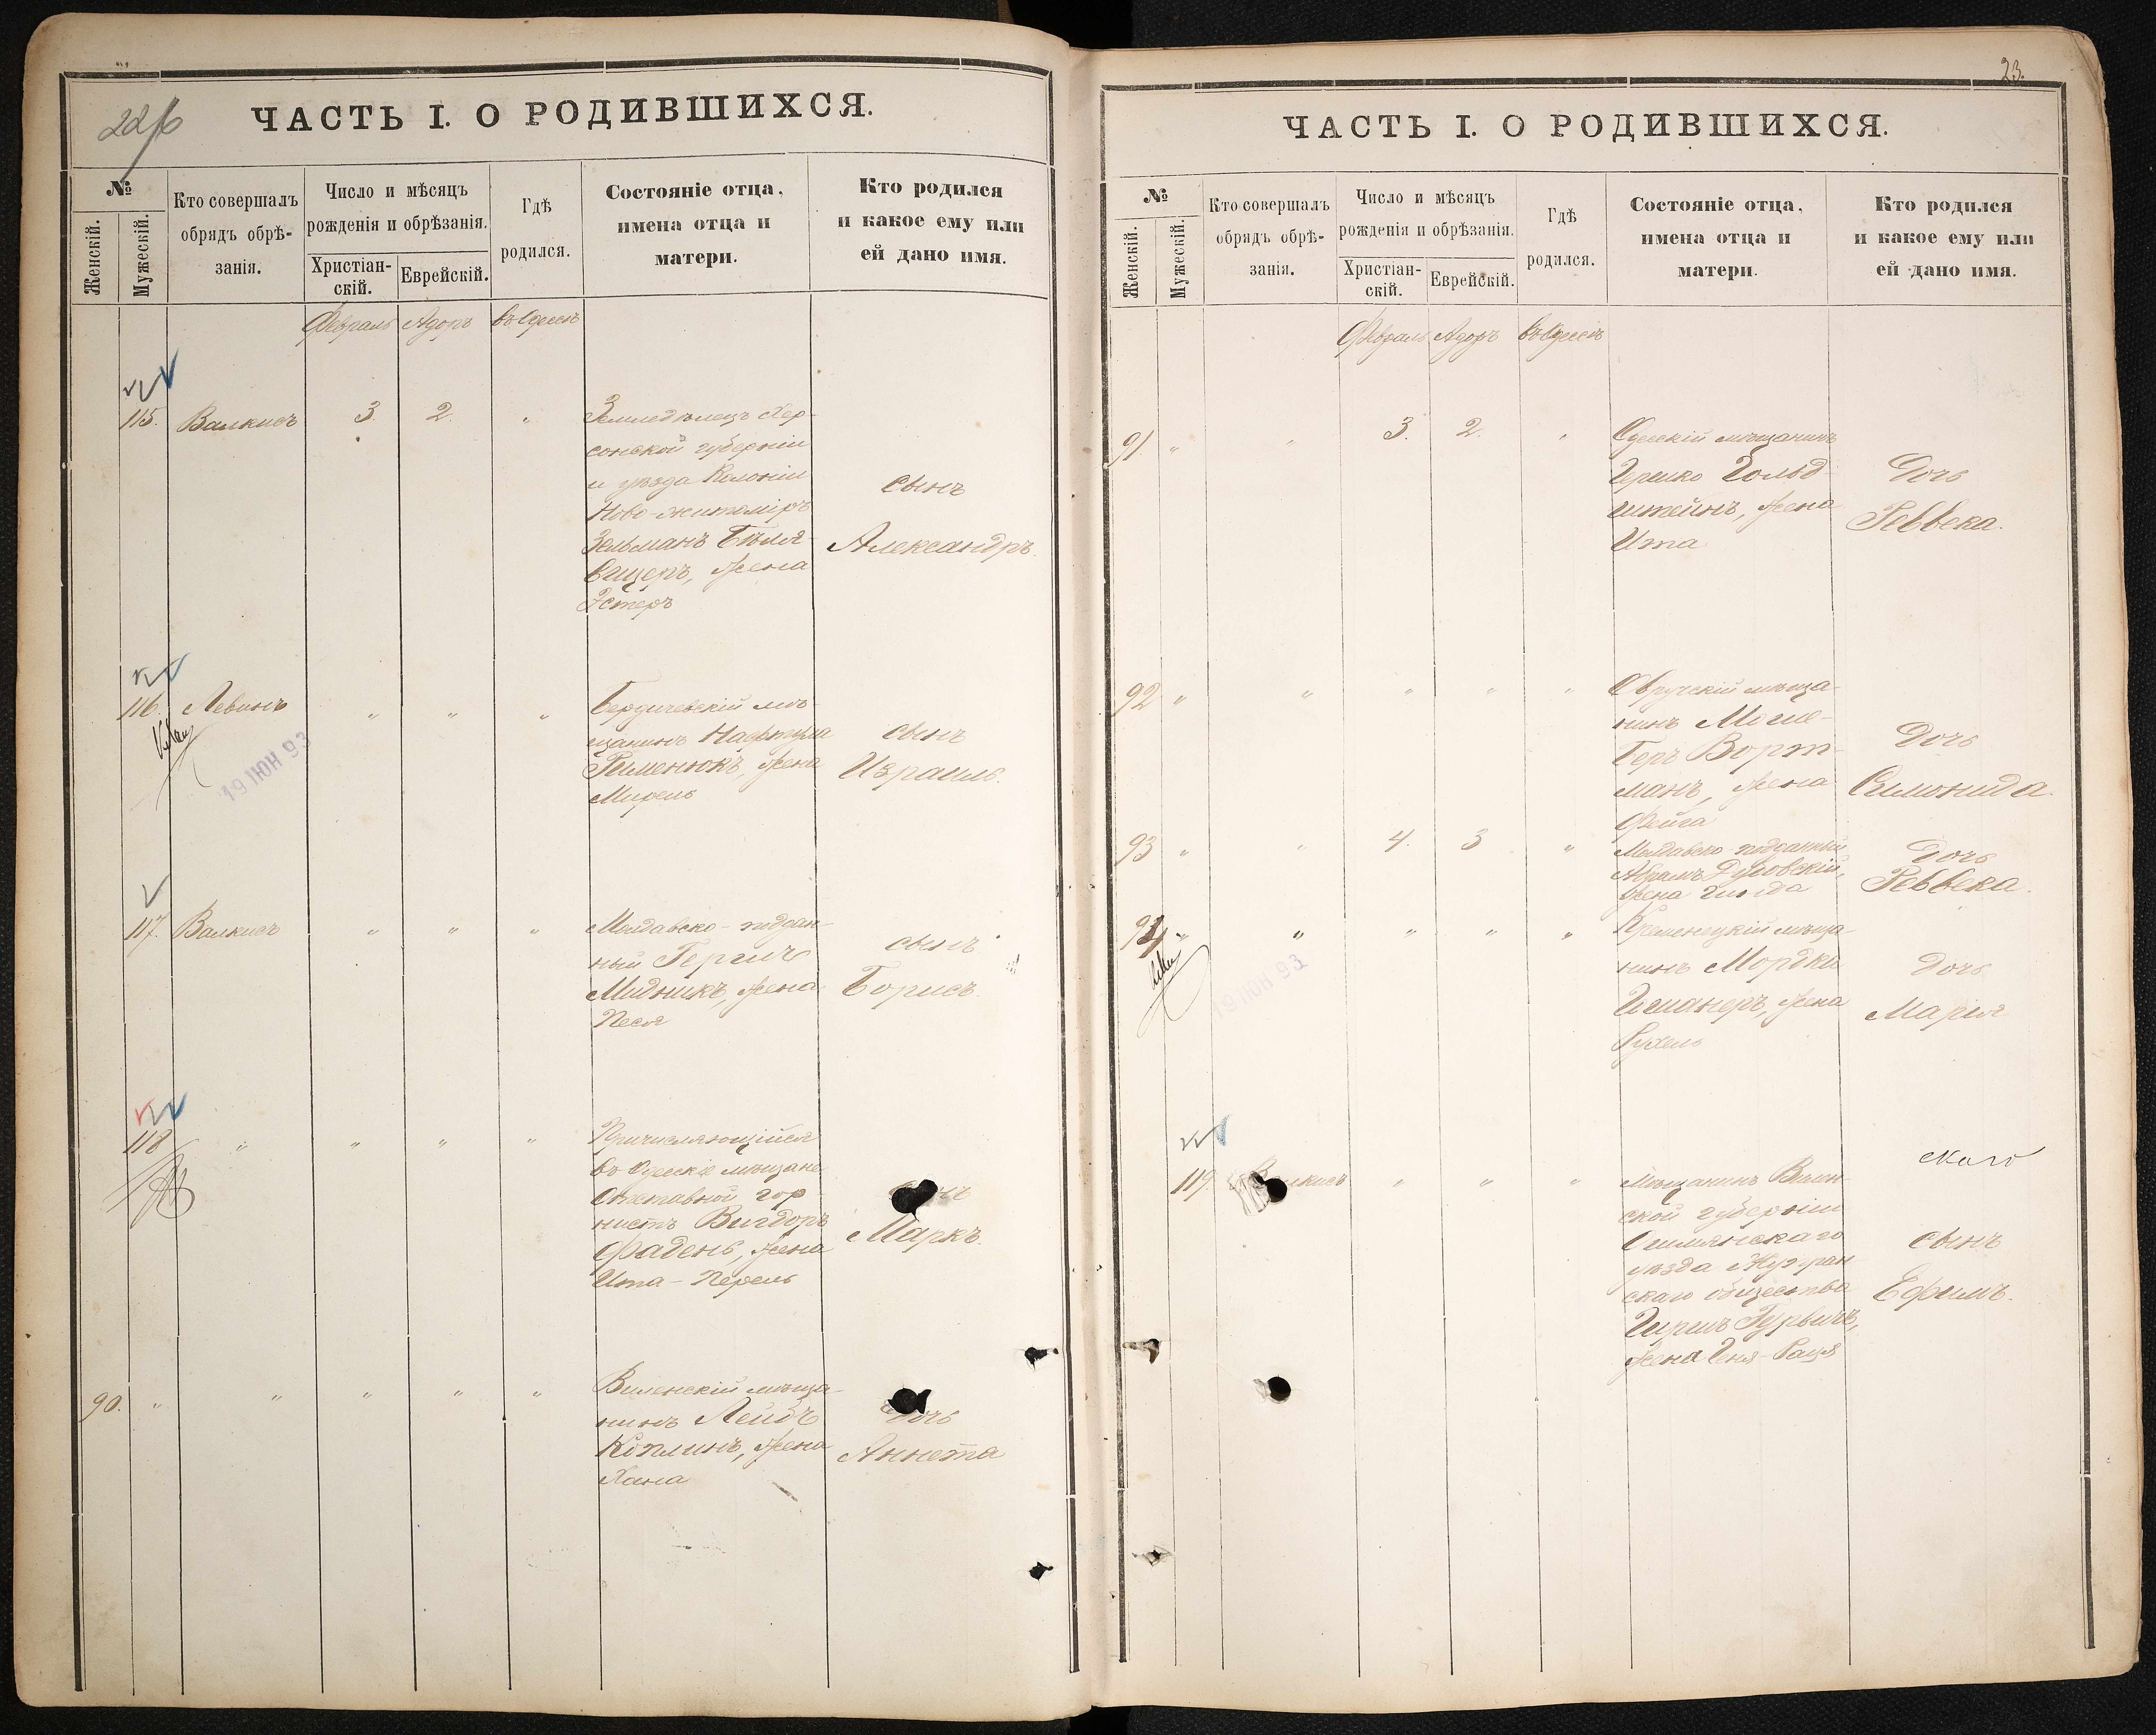 ЧАСТЬ I. О РОДИВШИХСЯ.
№
Женскій.
Мужескій.
Кто совершалъ
обрядъ обрѣ-
занія.
Число и мѣсяцъ
рожденія и обрѣзанія.
Христіан-
скій.
Еврейскій.
Гдѣ
родился.
Состояніе отца,
имена отца и
матери.
Кто родился
и какое ему или
ей дано имя.
Февраль Адоръ въ Одессѣ
115. Валкисъ 3. 2. "
Земледѣлецъ Хер-
сонской губерніи
и уѣзда Колоніи
Ново-житоміръ
Зельманъ
жена
Эстеръ
сынъ
Александръ.
116. Левинъ " " "
Бердичевскій мѣ-
щанинъ Нафтула
жена
Мирель
сынъ
Израиль.
19 ІЮН 93
117. Валкисъ " " "
Молдавско-поддан-
ный Гершъ
Мидникъ, жена
Песя
сынъ
Борисъ.
118 " " " "
Причисляющійся
въ Одесскіе мѣщане
Отставной гор-
нистъ Вигдоръ
Фадень, жена
Ита-Перель
Маркъ.
90. " " " " "
Виленскій мѣща-
нинъ Лейбъ
Коплинъ, жена
Хана
Дочь
Аннета
23.
ЧАСТЬ I. О РОДИВШИХСЯ.
№
Женскій.
Мужескій.
Кто совершалъ
обрядъ обрѣ-
занія.
Число и мѣсяцъ
рожденія и обрѣзанія.
Христіан-
скій.
Еврейскій.
Гдѣ
родился.
Состояніе отца,
имена отца и
матери.
Кто родился
и какое ему или
ей дано имя.
Февраль Адоръ въ Одессѣ
91 " " 3. 2. "
Одесскій мѣщанинъ
Гершко Гольд-
штейнъ, жена
Ита
Дочь
Реввека.
92 " " " " "
Овручскій мѣща-
нинъ Мошe-
Беръ Ворт-
манъ, жена
Фейга
Дочь
Симонида.
93 " " 4. 3 "
Молдавско-подданный
Абрамъ
жена
Дочь
Реввека.
94 " " " " "
Кременецкій мѣща-
нинъ Мордко
жена
Рухель
Дочь
Марія
19 ІЮН 93
119. " " "
Мѣщанинъ Вилен-
ской губерніи
Ошмянскаго
уѣзда
скаго общества
Гиршъ Гурвичъ,
жена Геня-Раця
скаго
сынъ
Ефимъ.